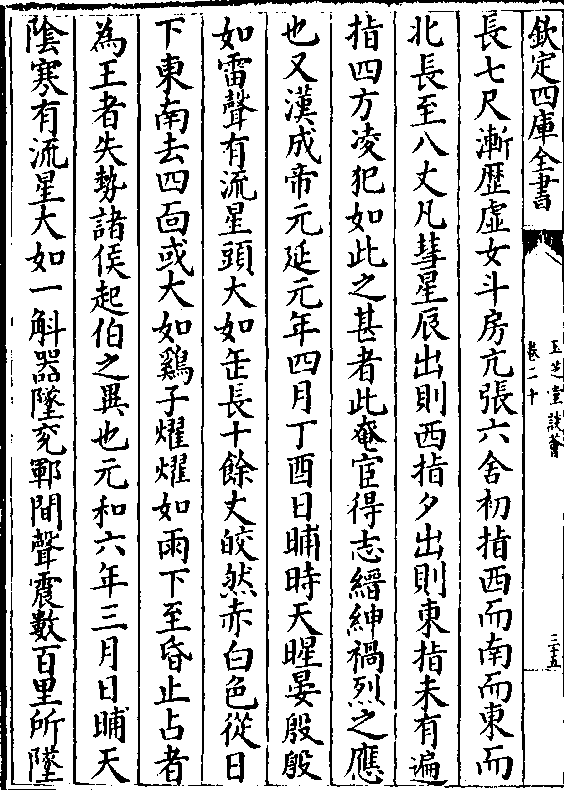 欽定四庫全書
玉芝堂談薈
卷二十
二十五
長七尺漸歴虚女斗房亢張六舍初指西而南而東而
北長至八丈凡彗星辰出則西指夕出則東指未有遍
指四方凌犯如此之甚者此奄宦得志縉紳禍烈之應
也又漢成帝元延元年四月丁酉日晡時天暒晏殷殷
如雷聲有流星頭大如缶長十餘丈皎然赤白色從日
下東南去四面或大如鷄子燿燿如雨下至昏止占者
為王者失勢諸侯起伯之異也元和六年三月日晡天
陰寒有流星大如一斛器墜兖鄆間聲震數百里所墜